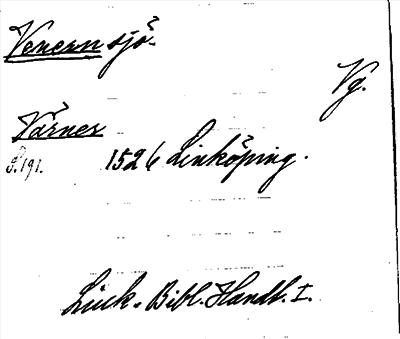 Venern sjö.
Vg.
Värner
S. 191. 1526 Linköping.
Link. Bibl. Handl. I.